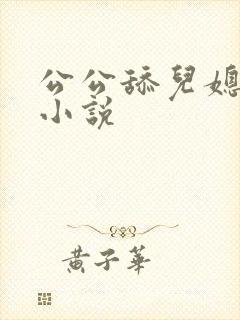 公公舔兒媳
小說
黃子華